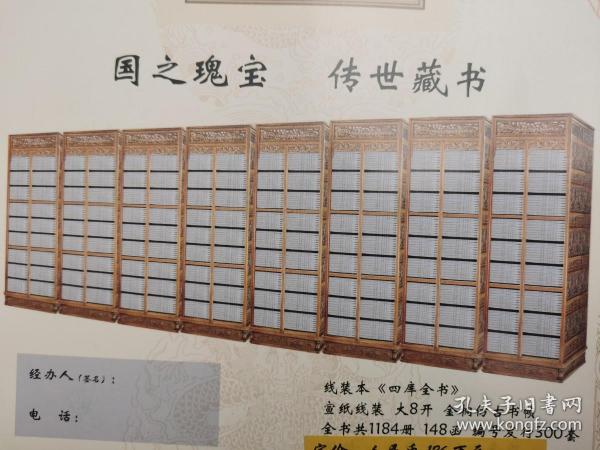 国之瑰宝 传世藏书
经办人(签名):
电 话:
线装本《四库全书》
宣纸线装 大8开 全樟仿古书
全书共1184册 148函 编号发行300套
孔夫子旧书网